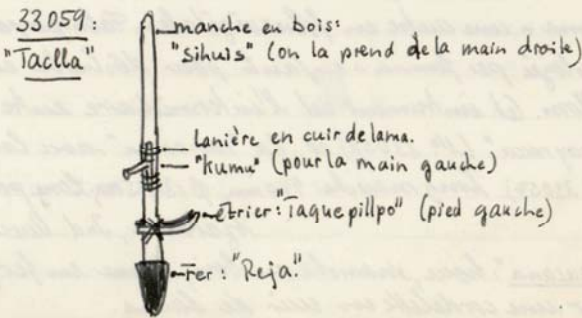 33059:
"Taclla"
manche en bois:
"Sihuis" (on la prend de la main droite)
Lanière en cuir de lama.
"Kumu" (pour la main gauche)
étrier: "Taquepillpo" (pied gauche)
Fer: "Reja"